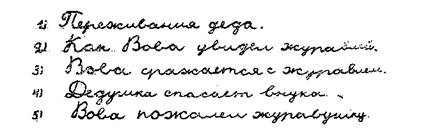 1) Переживания деда.
2) Как Вова увидел журавлей.
3) Вова сражается с журавлем.
4) Дедушка спасает внука.
5) Вова пожалел журавушку.